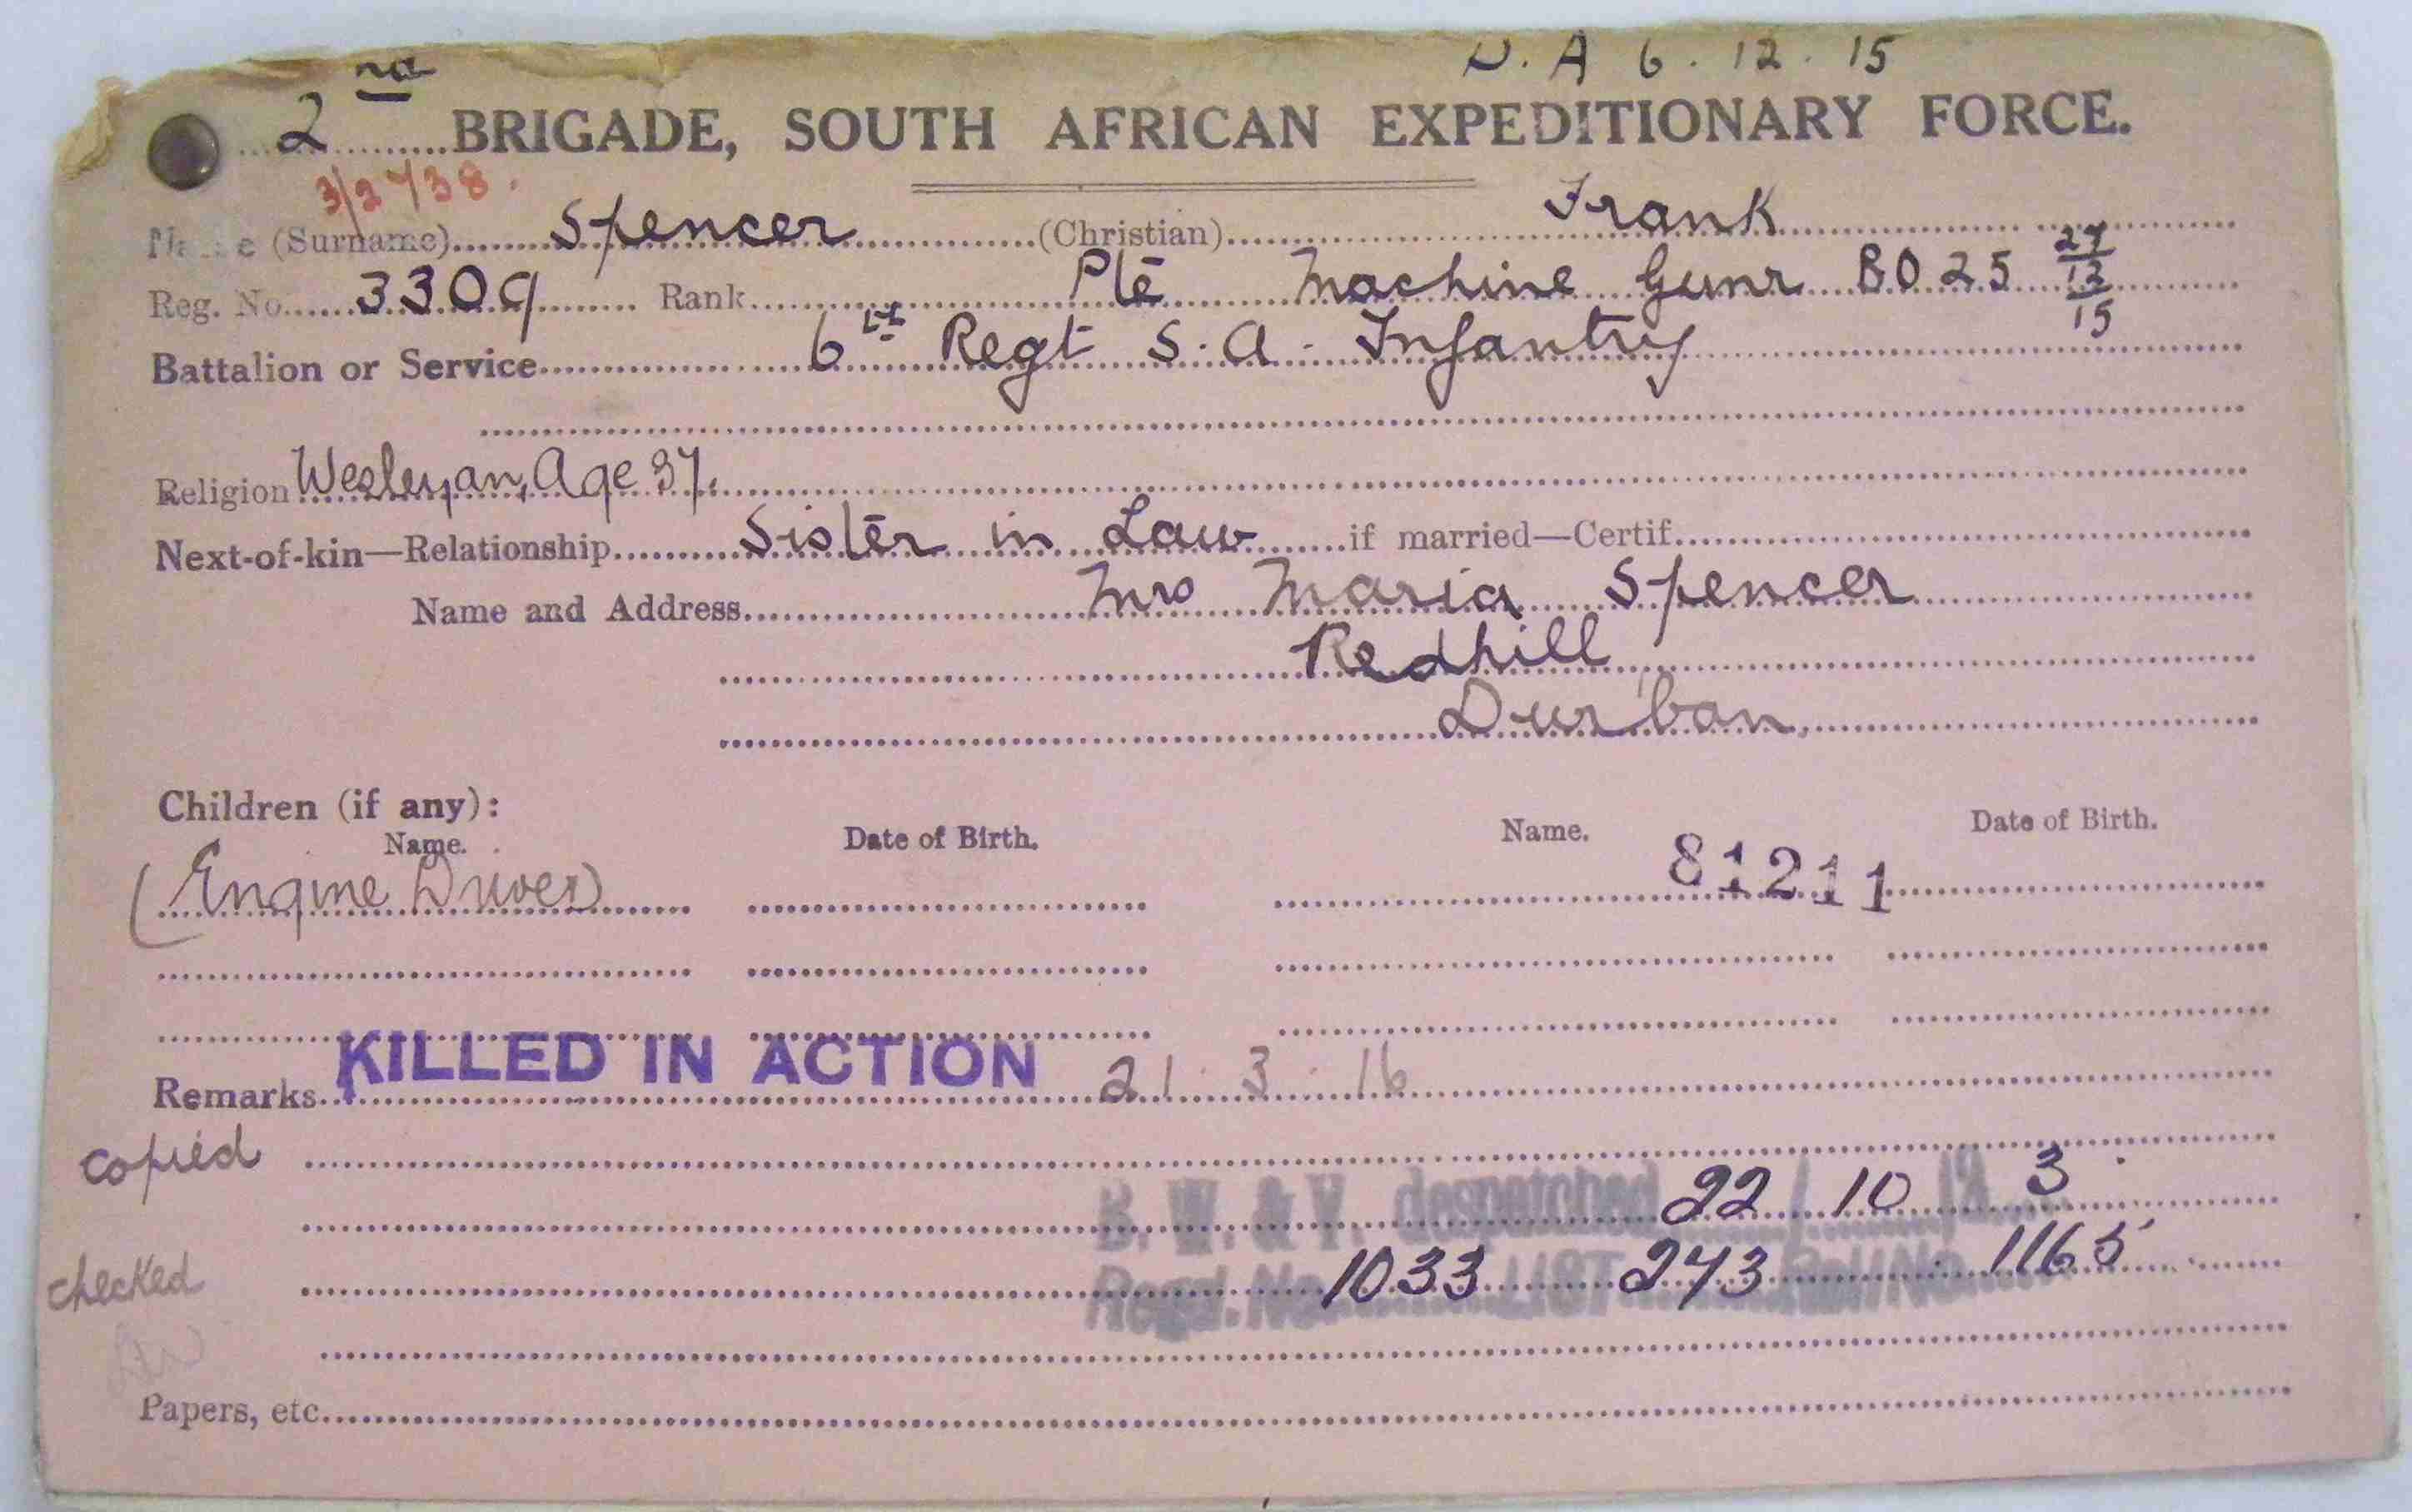 D. A 6. 12. 15
2nd BRIGADE, SOUTH AFRICAN EXPEDITIONARY FORCE.
Name (Surname) Spencer (Christian) Frank
Reg. No. 3309 Rank Pte Machine Gunr BO 25 27/12/15
Battalion or Service 6th Regt S. A. Infantry
Religion Wesleyan, Age 37.
Next-of-kin—Relationship Sister in Law if married—Certif.
Name and Address Mrs Maria Spencer
Redhill
Durban,
Children (if any):
Name. Date of Birth. Name. Date of Birth.
(Engine Driver) 81211
Remarks KILLED IN ACTION 21. 3. 16
copied
B. W. & V. despatched 22/10 3
checked Regd. No. 1033 LIST 243 Roll No. 1165
Papers, etc.